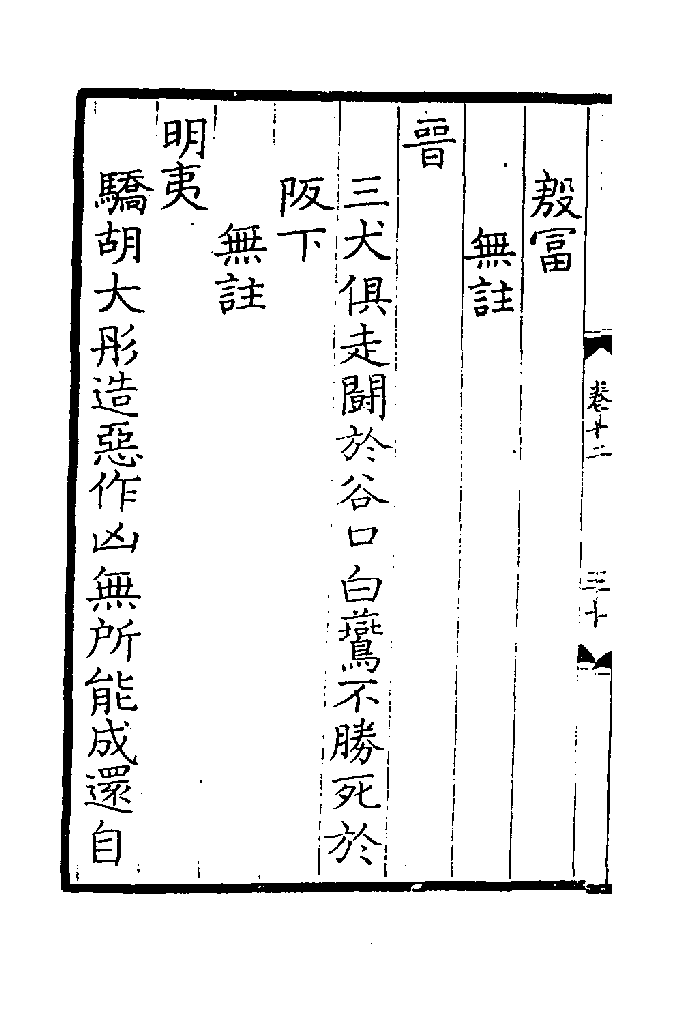 卷十二
三十
殷富
無註
晉
三犬俱走闘於谷口白鷰不勝死於
阪下
無註
明夷
驕胡大彤造惡作凶無所能成還自